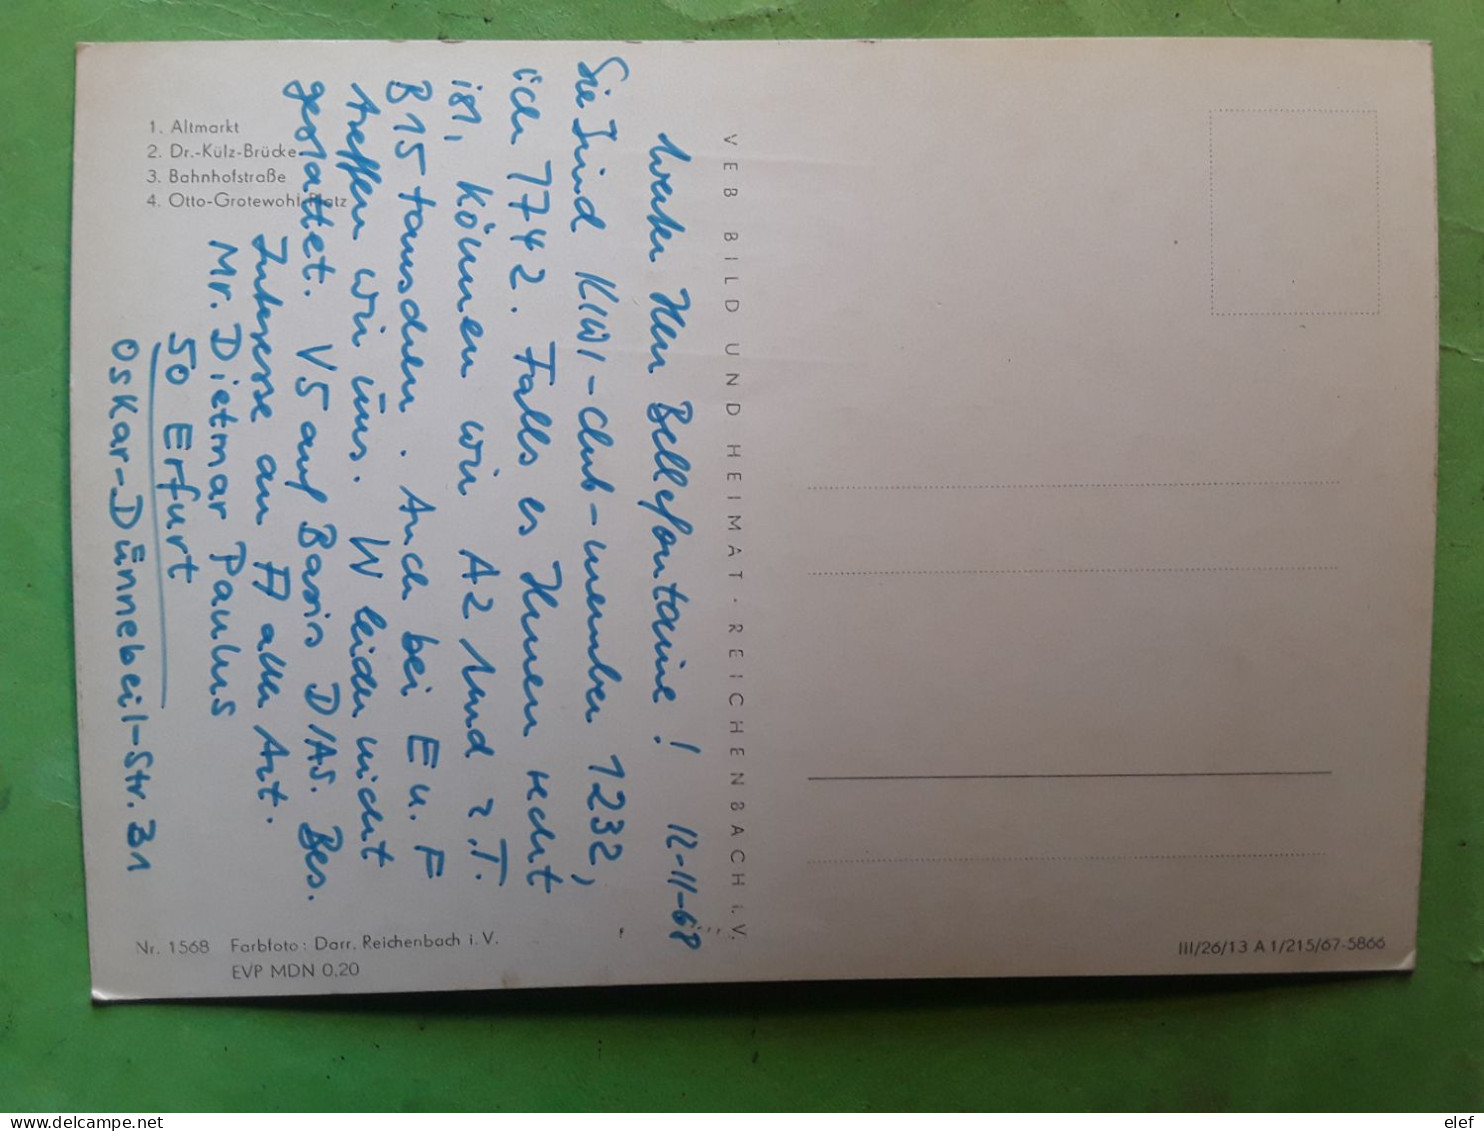 1. Altmarkt
2. Dr.-Külz-Brücke
3. Bahnhofstraße
4. Otto-Grotewohl-Platz
Werter Herr Bellefontaine! 12-11-68
Sie sind KIWI-club-member 1232,
ich 7742. Falls es Ihnen recht
ist, können wir A2 und z.T.
B15 tauschen. Auch bei E u. F
treffen wir uns. W leider nicht
gestattet. V5 auf Basis DIAS. Bes.
Interesse an A aller Art.
Mr. Dietmar Paulus
50 Erfurt
Oskar-Dünnebeil-Str. 31
VEB BILD UND HEIMAT · REICHENBACH i. V.
Nr. 1568 Farbfoto: Darr, Reichenbach i. V.
EVP MDN 0,20
III/26/13 A 1/215/67-5866
elef